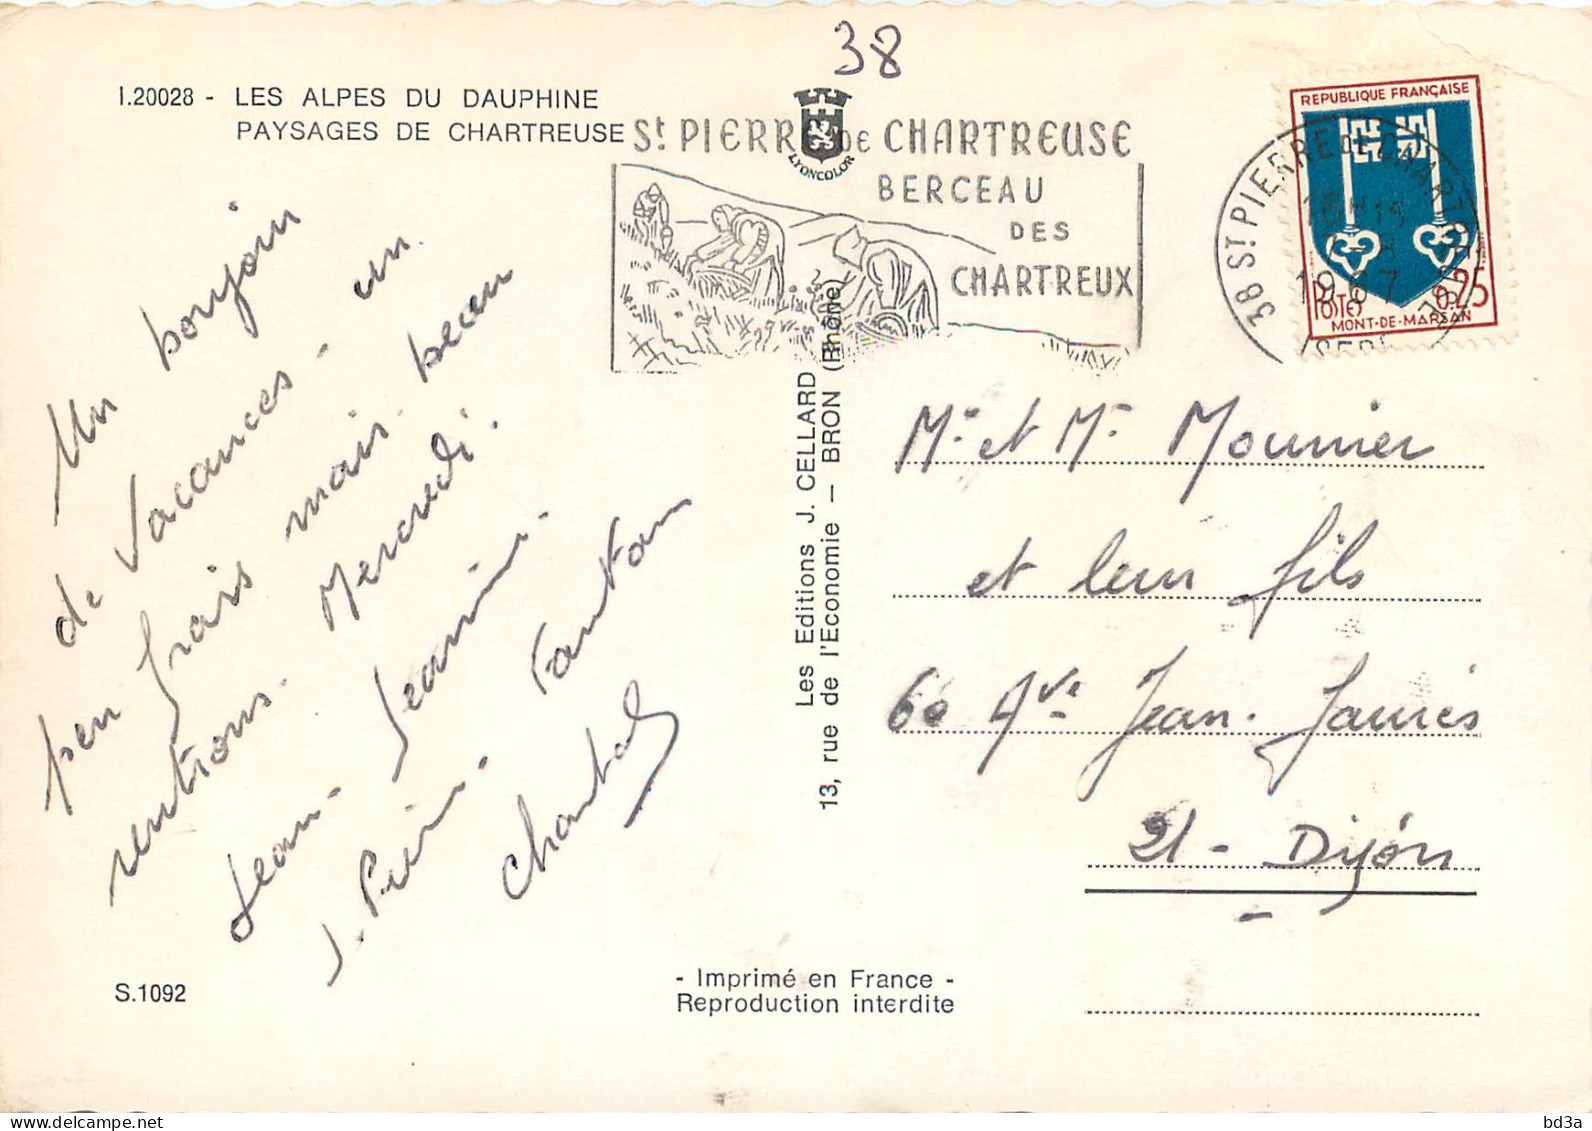 38
I.20028 - LES ALPES DU DAUPHINE
PAYSAGES DE CHARTREUSE
LYONCOLOR
St PIERRE DE CHARTREUSE
BERCEAU
DES
CHARTREUX
REPUBLIQUE FRANÇAISE
POSTES 0,25
MONT-DE-MARSAN
38 ST PIERRE DE CHARTREUSE
1967
ISERE
Un bonjour
de Vacances - un
peu frais mais beau
rentrons. Mercredi.
Jean. Jeannine.
J. Pierre. Fanfan
Chantal
Les Editions J. CELLARD
13, rue de l'Economie — BRON (Rhône)
Mr et Me Mounier
et leur fils
60 Ave Jean. Jaurès
21 - Dijon
S.1092
- Imprimé en France -
Reproduction interdite
bd3a